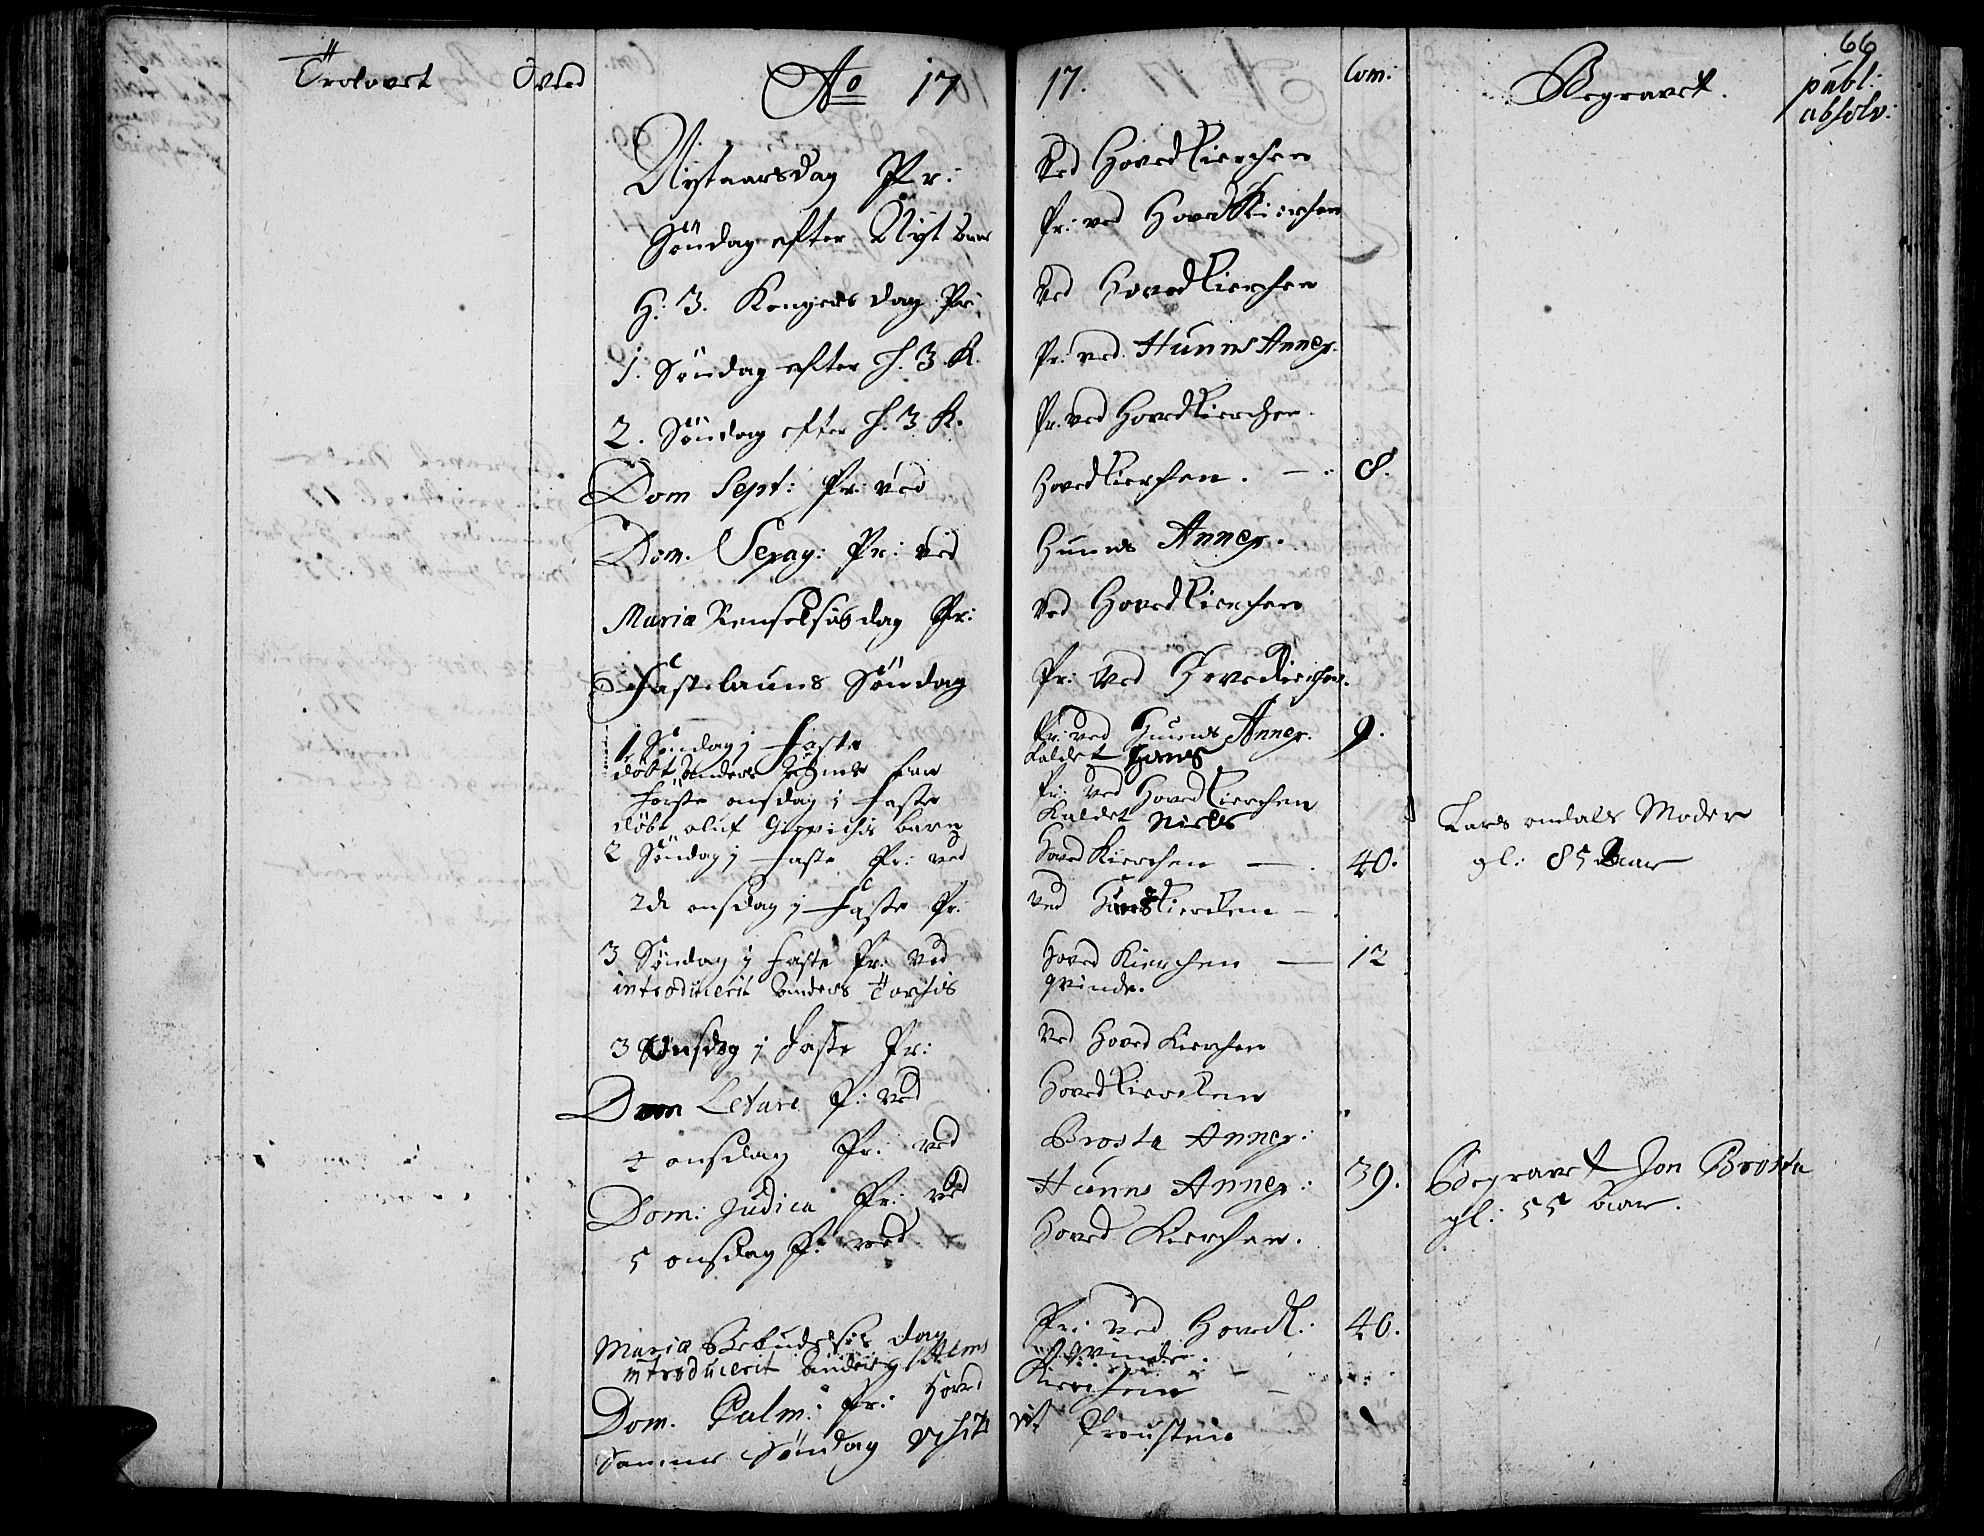 66
Trolovet Ao 17 17. Com: Begravet. publ: absolv:
Nytaarsdag Pr: Ved Hovedkierchen
Søndag efter Nyt Aar Pr: ved Hovedkierchen
H: 3. Kongers dag Pr: Ved Hovedkierchen
1. Søndag efter H. 3 K. Pr: ved Hunns Annex.
2. Søndag efter H. 3 K. Pr: ved Hovedkierchen.
Dom Sept: Pr: ved Hovedkierchen. — 8.
Dom. Sexag: Pr: ved Hunns Annex.
Maria Renselsis dag Pr: Ved Hovedkierchen
Fastelauns Søndag Pr: ved Hovedkierchen.
1 Søndag j Faste Pr: ved Hunns Annex. 9.
døbt Anders kaldet Hans
første onsdag i Faste Pr: Ved Hovedkierchen
døbt oluf barn Kaldet Niels
Lars ondals Moder
2 Søndag j Faste Pr: ved Hoved Kierchen — 40.
gl: 85 Aar
2d onsdag j Faste Pr: ved Kierchen —
3 Søndag j Faste Pr: Ved Hoved Kierchen — 12
introducerit Anders qvinde.
3 Onsdag j Faste Pr: Ved Hoved Kierchen
Dom Letare P: Ved Hovedkierchen
4 onsdag Pr: ved Brosta Annex:
Dom: Judica Pr: ved Hunns Annex: 39. Begravet Jon Brosta
5 onsdag P: ved Hoved Kierchen. gl: 55 Aar.
Maria Bebudelsis dag Pr: ved Hovedk: 40.
introducerit Anders Qvinde.
Dom. Palm: Pr: Hoved Kierchen —
Samme Søndag visiterit Prousten